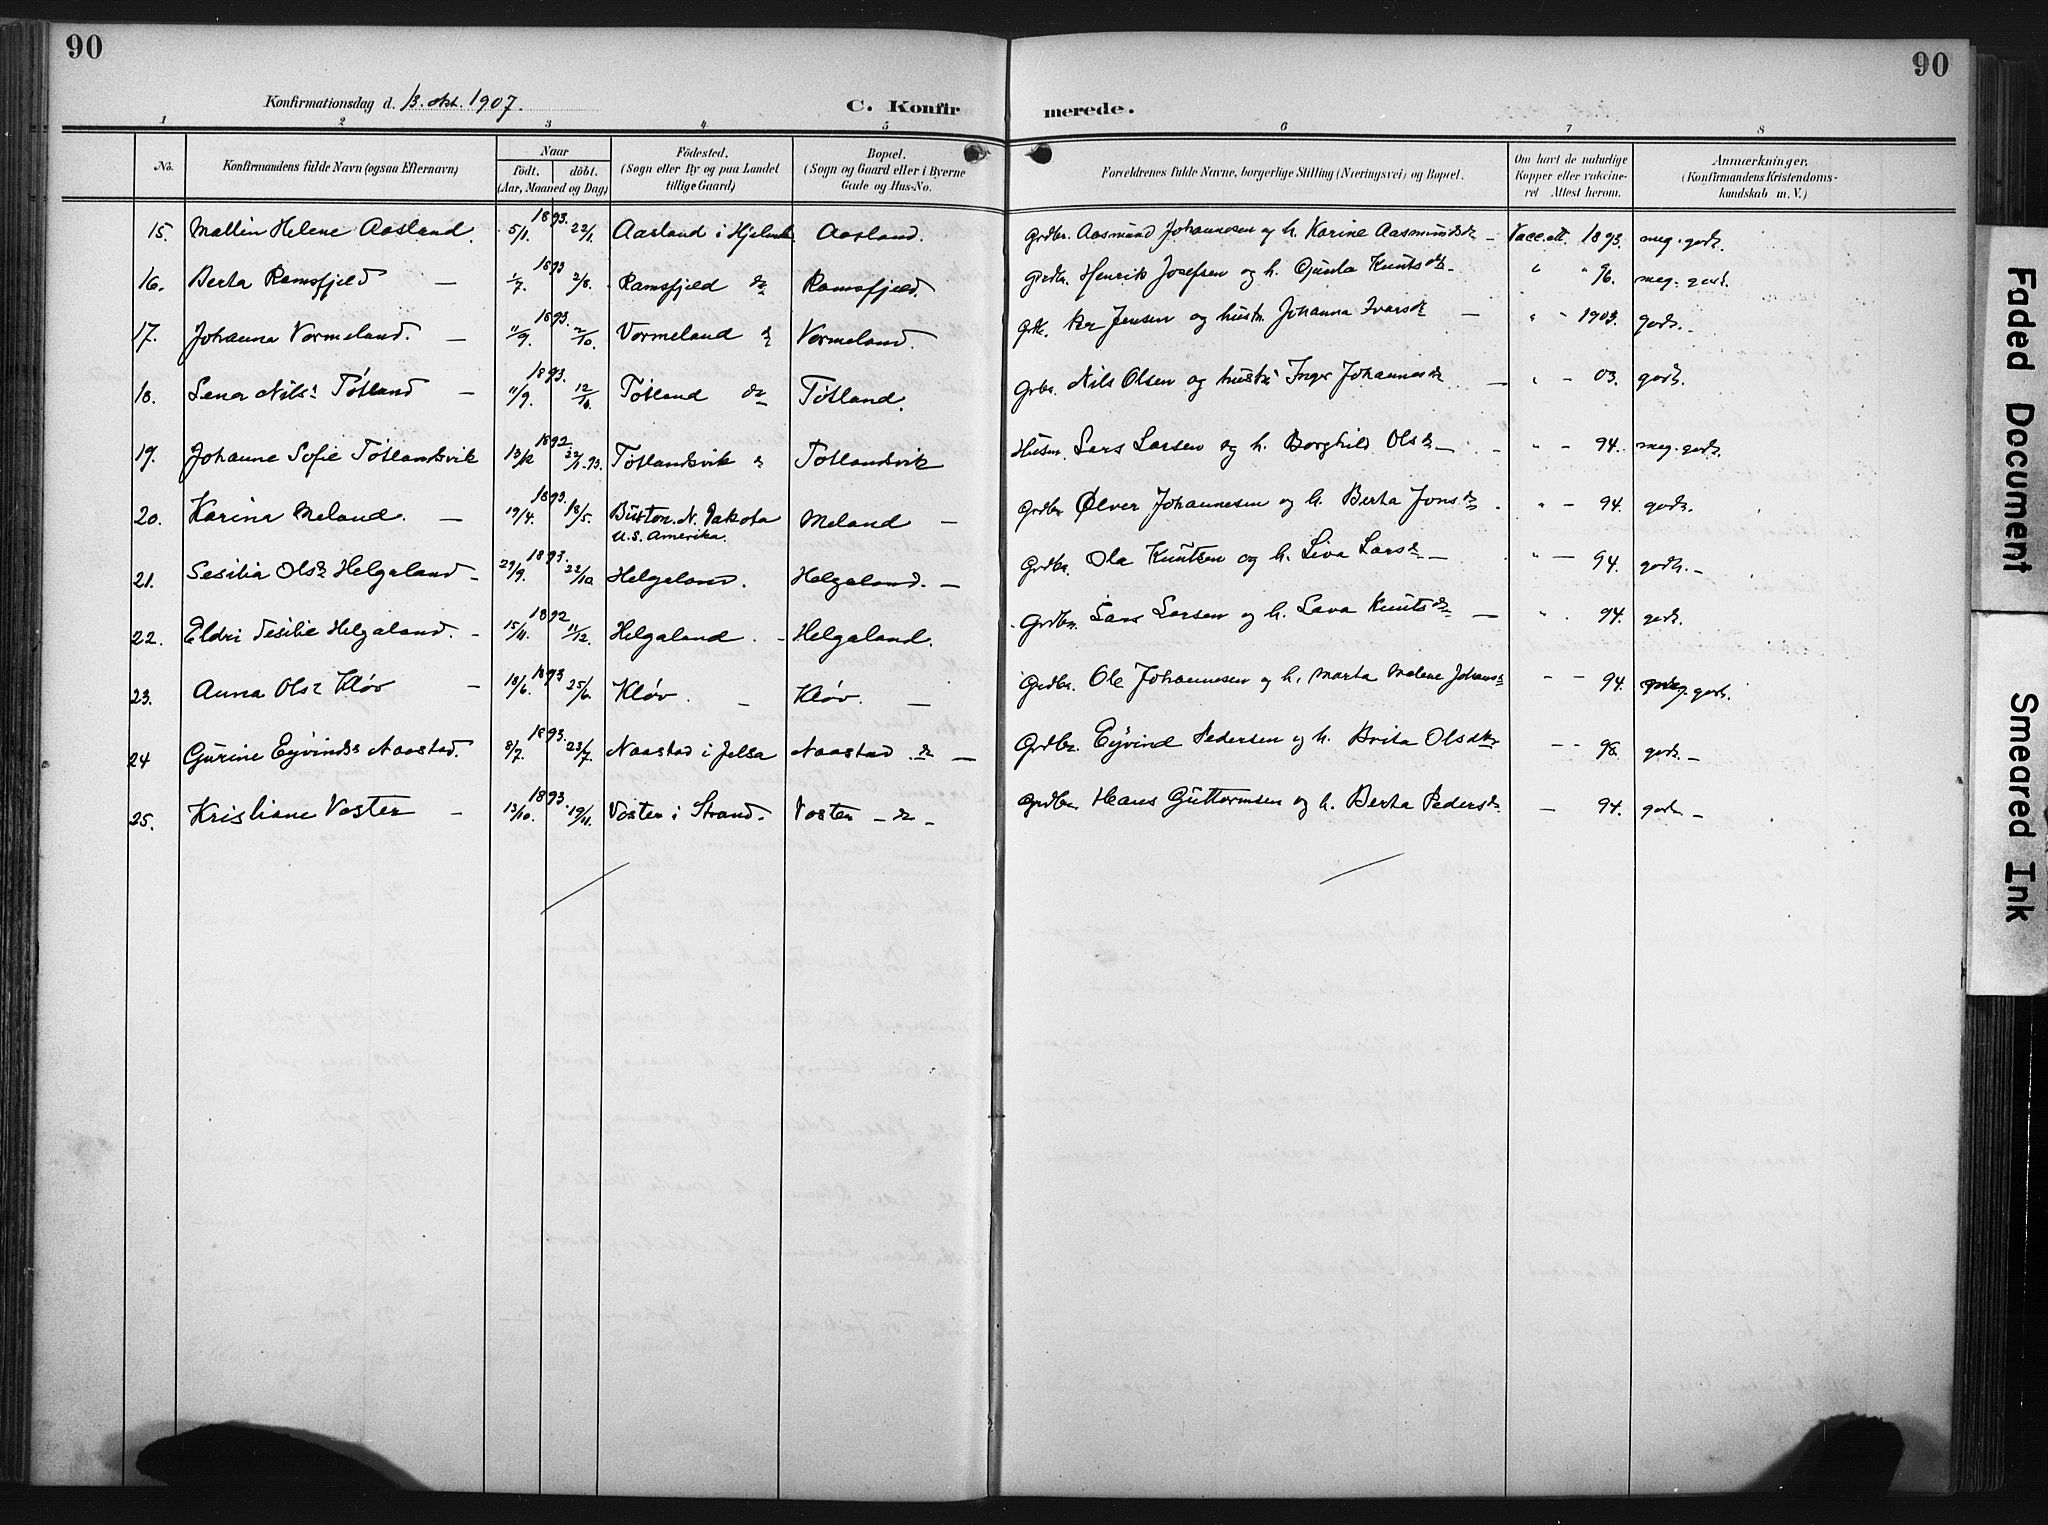 90
90
Konfirmationsdag d. 13. okt. 1907.
C. Konfirmerede.
1 2 3 4 5 6 7 8
No.
Konfirmandens fulde Navn (ogsaa Efternavn)
Naar
født. døbt.
(Aar, Maaned og Dag)
Fødested.
(Sogn eller By og paa Landet
tillige Gaard)
Bopæl.
(Sogn og Gaard eller i Byerne
Gade og Hus-No.
Forældrenes fulde Navne, borgerlige Stilling (Næringsvei) og Bopæl.
Om havt de naturlige
Kopper eller vakcine-
ret Attest herom.
Anmærkninger.
(Konfirmandens Kristendoms-
kundskab m. V.)
15. Mallin Helene Aasland. 5/1. 1893. 22/1. Aasland i Hjelmel. Aasland. Grdbr. Aasmund Johannesen og h. Karine Aasmundsdr – Vacc. att. 1893. meg. godt.
16. Berta Ramsfjeld – 1/7. 1893 2/8. Ramsfjeld do Ramsfjeld. Grdbr. Henrik Josefsen og h. Gunla Knutsdr. " " 96. meg. godt.
17. Johanna Vormeland. – 11/9. 1893. 2/10. Vormeland do Vormeland. Grbr. Per Jensen og hustr. Johanna Ivarsdr – " – 1903. godt. –
18. Lena Nilsd Tøtland – 11/9. 1893. 12/10. Tøtland do Tøtland. Grbr. Nils Olsen og hustr. Inger Johannesdr – " – 03. godt.
19. Johanne Sofie Tøtlandsvik 13/12 1892 22/1.93. Tøtlandsvik do Tøtlandsvik Husm. Lars Larsen og h. Borghild Olsdr – " – 94. meg. godt.
20. Karina Meland. – 19/4. 1893. 18/5. Buxton. N. Dakota Meland – Grdbr. Ølver Johannesen og h. Berta Jonsdr " – 94. godt.
U.S. Amerika.
21. Sesilia Olsdr Helgaland – 29/9. 1893. 22/10 Helgaland. Helgaland. – Grdbr. Ola Knutsen og h. Liva Larsdr – " – 94. godt. –
22. Eldri Sesilie Helgaland. – 15/11. 1892 11/12. Helgaland – Helgaland. Grdbr. Lars Larsen og h. Lava Knutsdr – " 94. godt.
23. Anna Olsd Kløv – 18/6. 1893. 25/6. Kløv. – Kløv. – Grdbr. Ole Johannesen og h. Marta Malene Johansdr " – 94. meg. godt.
24 Gurine Eyvindsd Naastad. 8/7. 1893. 23/7. Naastad i Jelsa Naastad do – Grdbr. Eyvind Pedersen og h. Brita Olsdtr – " 98. godt. –
25. Kristiane Voster – 13/10. 1893. 19/11. Voster i Strand. Voster – do – Grdbr. Hans Guttormsen og h. Berta Pedersdr – 94. godt –
Faded Document
Smeared Ink